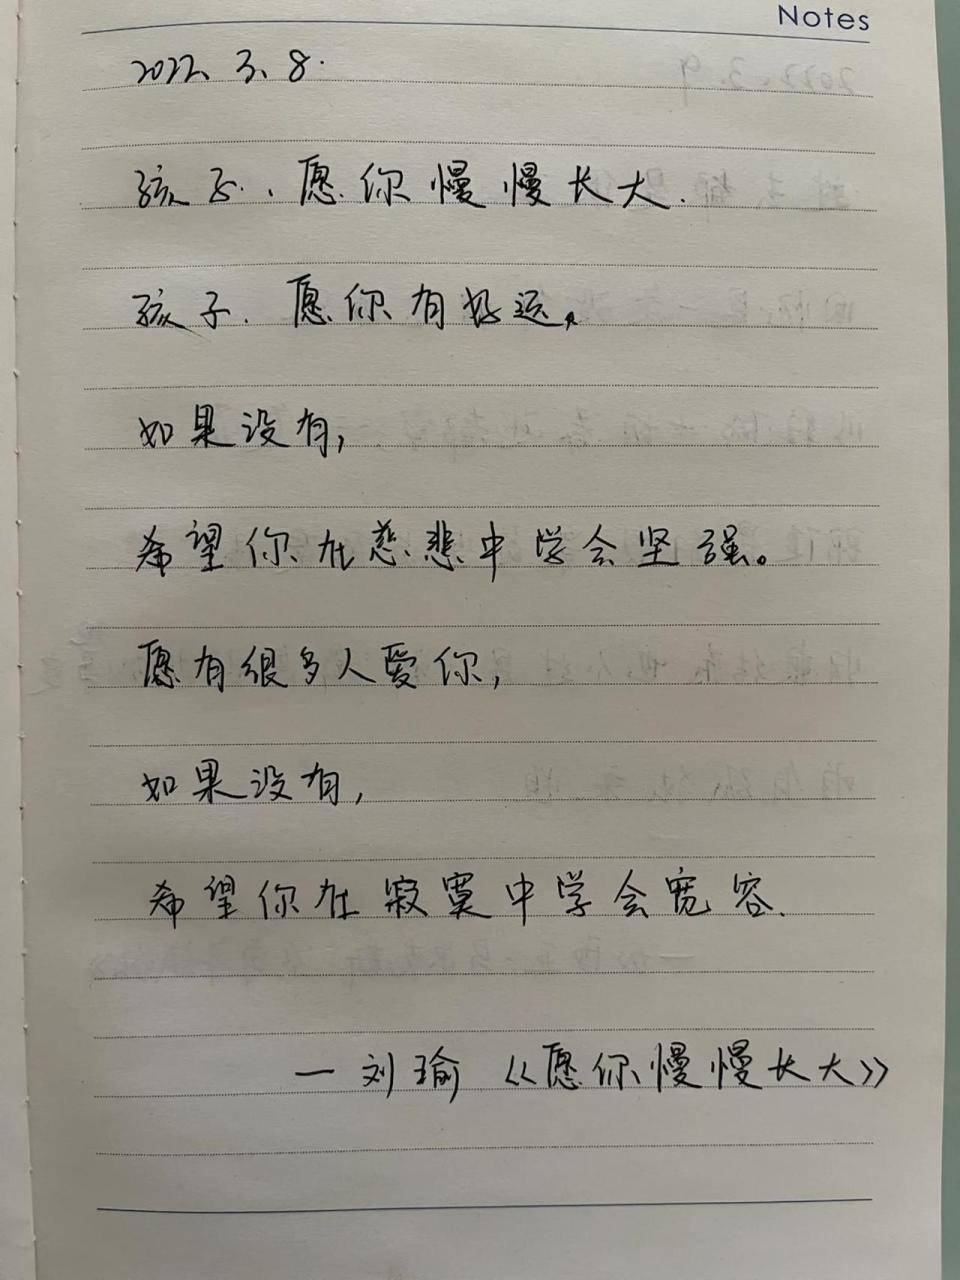 Notes
2022.3.8.
孩子,愿你慢慢长大.
孩子.愿你有好运,
如果没有,
希望你在慈悲中学会坚强。
愿有很多人爱你,
如果没有,
希望你在寂寞中学会宽容.
—刘瑜《愿你慢慢长大》